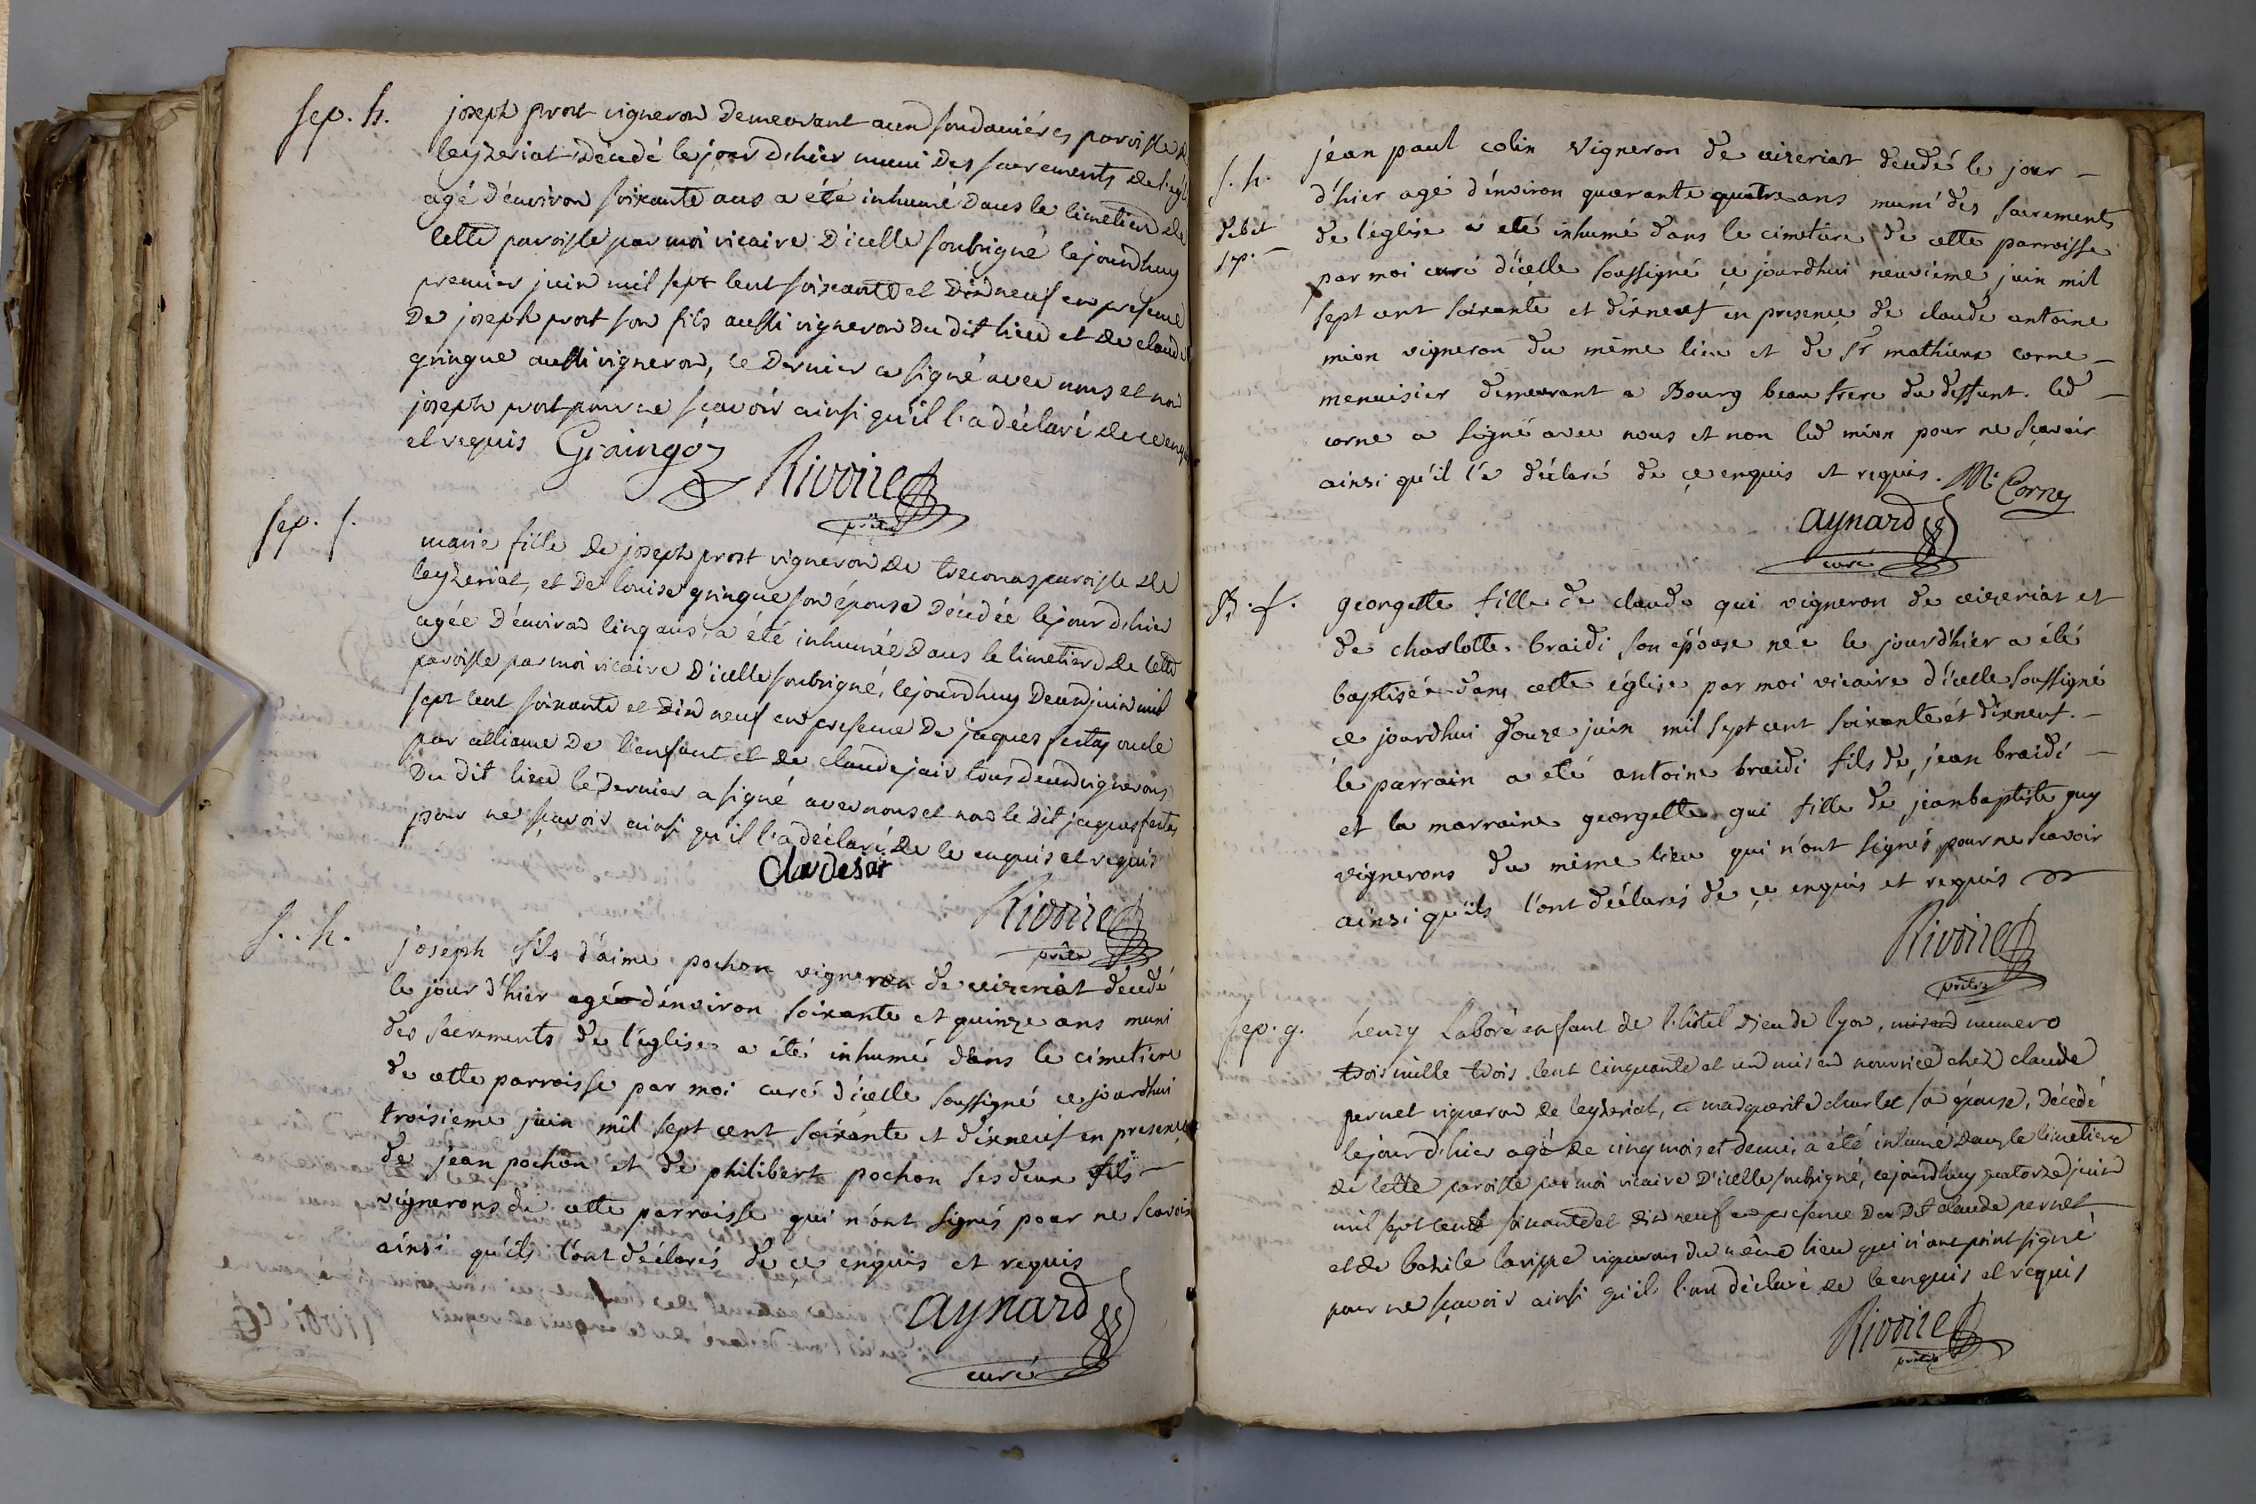 sep. h.
joseph prost vigneron demeurant aux soudanières paroisse de
ceyzeriat décédé le jour d'hier muni des sacrements de l'égl
agé d'environ soixante ans a été inhumé dans le cimetiere de
cette paroisse par moi vicaire d'icelle soubsigné cejourdhuy
premier juin mil sept cent soixante et dix neuf en presence
de joseph prost son fils aussi vigneron du dit lieu et de claude
gringue aussi vigneron, ce dernier a signé avec nous et non
joseph prost pour ne sçavoir ainsi qu'il l'a déclaré de ce enquis
et requis Graingoz
Rivoire
prêtre
sep. f.
marie fille de joseph prost vigneron de treconas paroisse de
ceyzeriat, et de louise gringue son épouse décédée le jour d'hier
agée d'environ cinq ans, a été inhumée dans le cimetiere de cette
paroisse par moi vicaire d'icelle soubsigné, cejourdhuy deux juin mil
sept cent soixante et dix neuf en presence de jaques festas oncle
par alliance de l'enfant et de claude jair tous deux vignerons
du dit lieu le dernier a signé avec nous et non le dit jaques festas
pour ne sçavoir ainsi qu'il l'a déclaré de ce enquis et requis
Rivoire
prêtre
s. h.
joseph fils d'aimé pochon vigneron de ceizeriat décédé
le jour d'hier agé d'environ soixante et quinze ans muni
des sacrements de l'église a été inhumé dans le cimetiere
de cette parroisse par moi curé d'icelle soussigné ce jourdhui
troisieme juin mil sept cent soixante et dixneuf en presence
de jean pochon et de philibert pochon ses deux fils
vignerons de cette parroisse qui n'ont signés pour ne scavoir
ainsi qu'ils l'ont déclarés de ce enquis et requis
aynard
curé
s. h.
debit
sep.
jean paul colin vigneron de ceizeriat decedé le jour
d'hier agé d'environ quarante quatre ans muni des sacrements
de l'église a eté inhumé dans le cimetiere de cette parroisse
par moi curé d'icelle soussigné ce jourdhui neuvieme juin mil
sept cent soixante et dixneuf en presence de claude antoine
mion vigneron du même lieu et de sr mathieux corne
menuisier demeurant a Bourg beau frere du deffunt. led
corne a signé avec nous et non led mion pour ne sçavoir
ainsi qu'il l'a déclaré de ce enquis et requis. M. Corne
aynard
curé
B. f.
georgette fille de claude gui vigneron de ceizeriat et
de charlotte braidi son épouse née le jourd'hier a été
baptisée dans cette église par moi vicaire d'icelle soussigné
ce jourdhui douze juin mil sept cent soixante et dixneuf.
le parrain a eté antoine braidi fils de jean braidi
et la marraine georgette gui fille de jeanbaptiste guy
vignerons du même lieu qui n'ont signés pour ne scavoir
ainsi qu'ils l'ont déclarés de ce enquis et requis
Rivoire
prêtre
sep. g.
henry Laboré enfant de l'hôtel dieu de lyon, numero
trois mille trois cent cinquante et un mis en nourrice chez claude
pernet vigneron de ceyzeriat, et marguerite charlet sa épouse, décédé
le jour d'hier agé de cinq mois et demi, a été inhumé dans le cimetiere
de cette paroisse par moi vicaire d'icelle soubsigné, cejourdhuy quatorze juin
mil sept cent soixante et dix neuf en presence du dit claude pernet
et de bazile larippe vignerons du même lieu qui n'ont point signé
pour ne sçavoir ainsi qu'il l'ont déclaré de ce enquis et requis
Rivoire
prêtre